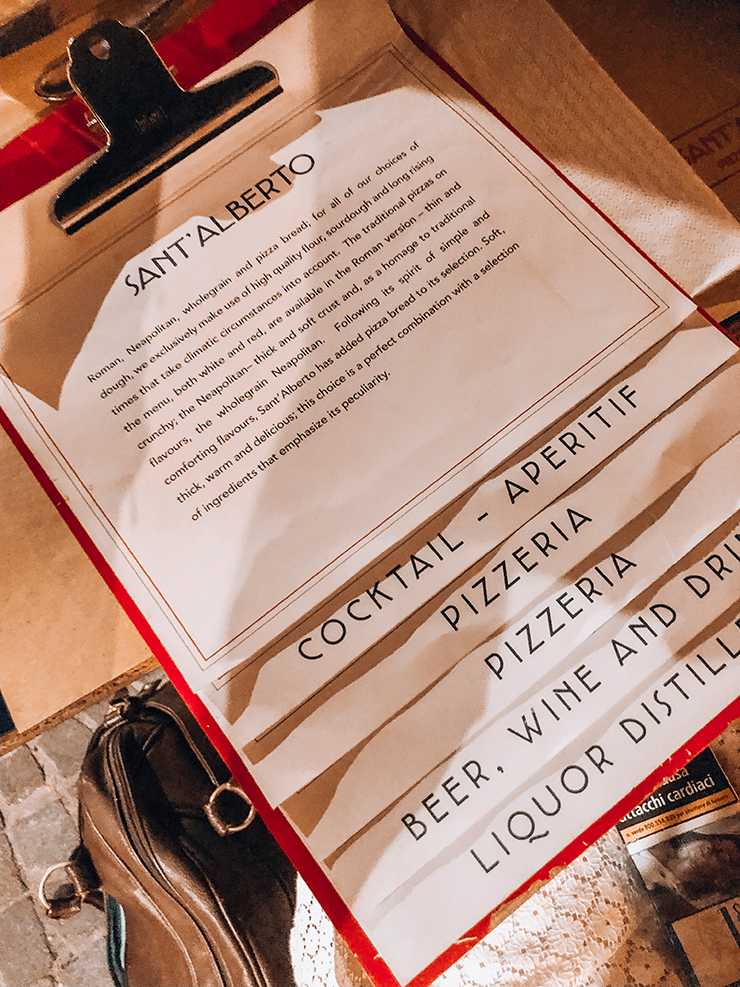 SANT'ALBERTO
Roman, Neapolitan, wholegrain and pizza bread: for all of our choices of
dough, we exclusively make use of high quality flour, sourdough and long rising
times that take climatic circumstances into account. The traditional pizzas on
the menu, both white and red, are available in the Roman version – thin and
crunchy; the Neapolitan– thick and soft crust and, as a homage to traditional
flavours, the wholegrain Neapolitan. Following its spirit of simple and
comforting flavours, Sant'Alberto has added pizza bread to its selection. Soft,
thick, warm and delicious; this choice is a perfect combination with a selection
of ingredients that emphasize its peculiarity.
COCKTAIL - APERITIF
PIZZERIA
PIZZERIA
BEER, WINE AND DRIN
LIQUOR DISTILLE
SANT'A
attacchi cardiaci